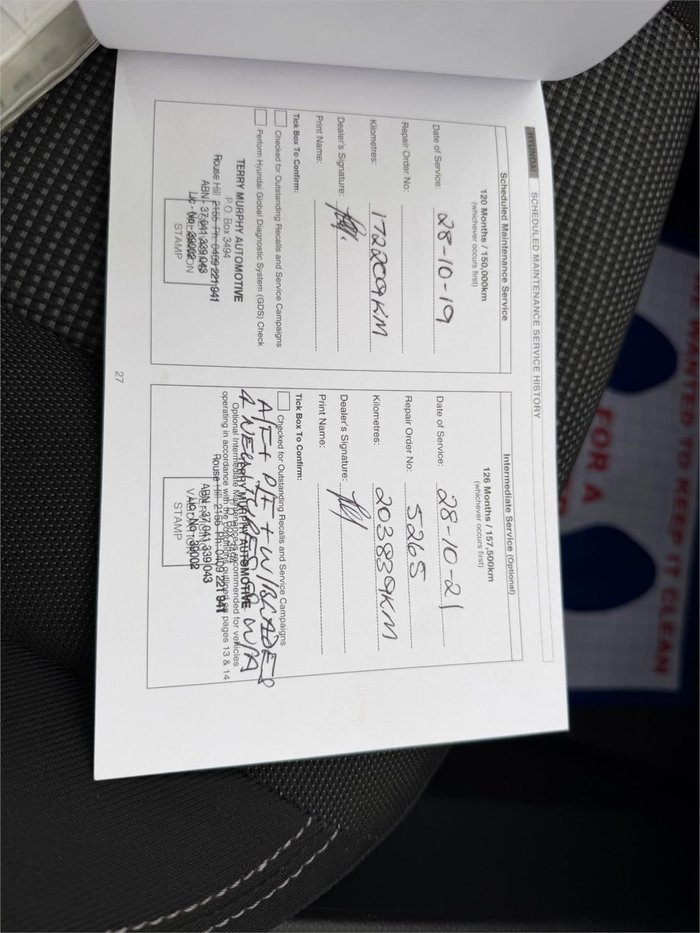 HYUNDAI SCHEDULED MAINTENANCE SERVICE HISTORY
Scheduled Maintenance Service
120 Months / 150,000km
(whichever occurs first)
Date of Service: 28-10-19
Repair Order No:
Kilometres: 172209KM
Dealer's Signature:
Print Name:
Tick Box To Confirm:
Checked for Outstanding Recalls and Service Campaigns
Perform Hyundai Global Diagnostic System (GDS) Check
TERRY MURPHY AUTOMOTIVE
P.O. Box 3494
Rouse Hill 2155 Ph: 0409 221 941
ABN: 37 041 339 043
Lic. No. 39002
STAMP
Intermediate Service (Optional)
126 Months / 157,500km
(whichever occurs first)
Date of Service: 28-10-21
Repair Order No: 5265
Kilometres: 203839KM
Dealer's Signature:
Print Name:
Tick Box To Confirm:
Checked for Outstanding Recalls and Service Campaigns
A/F + P/F + W/BLADES
4 NEW TYRES W/A
Optional Intermediate recommended for vehicles
operating in accordance with the conditions outlined on pages 13 & 14
TERRY MURPHY AUTOMOTIVE
Rouse Hill 2155 Ph: 0409 221 941
ABN: 37 041 339 043
Lic. No. 39002
STAMP
27
WANTED TO KEEP IT CLEAN
FOR A